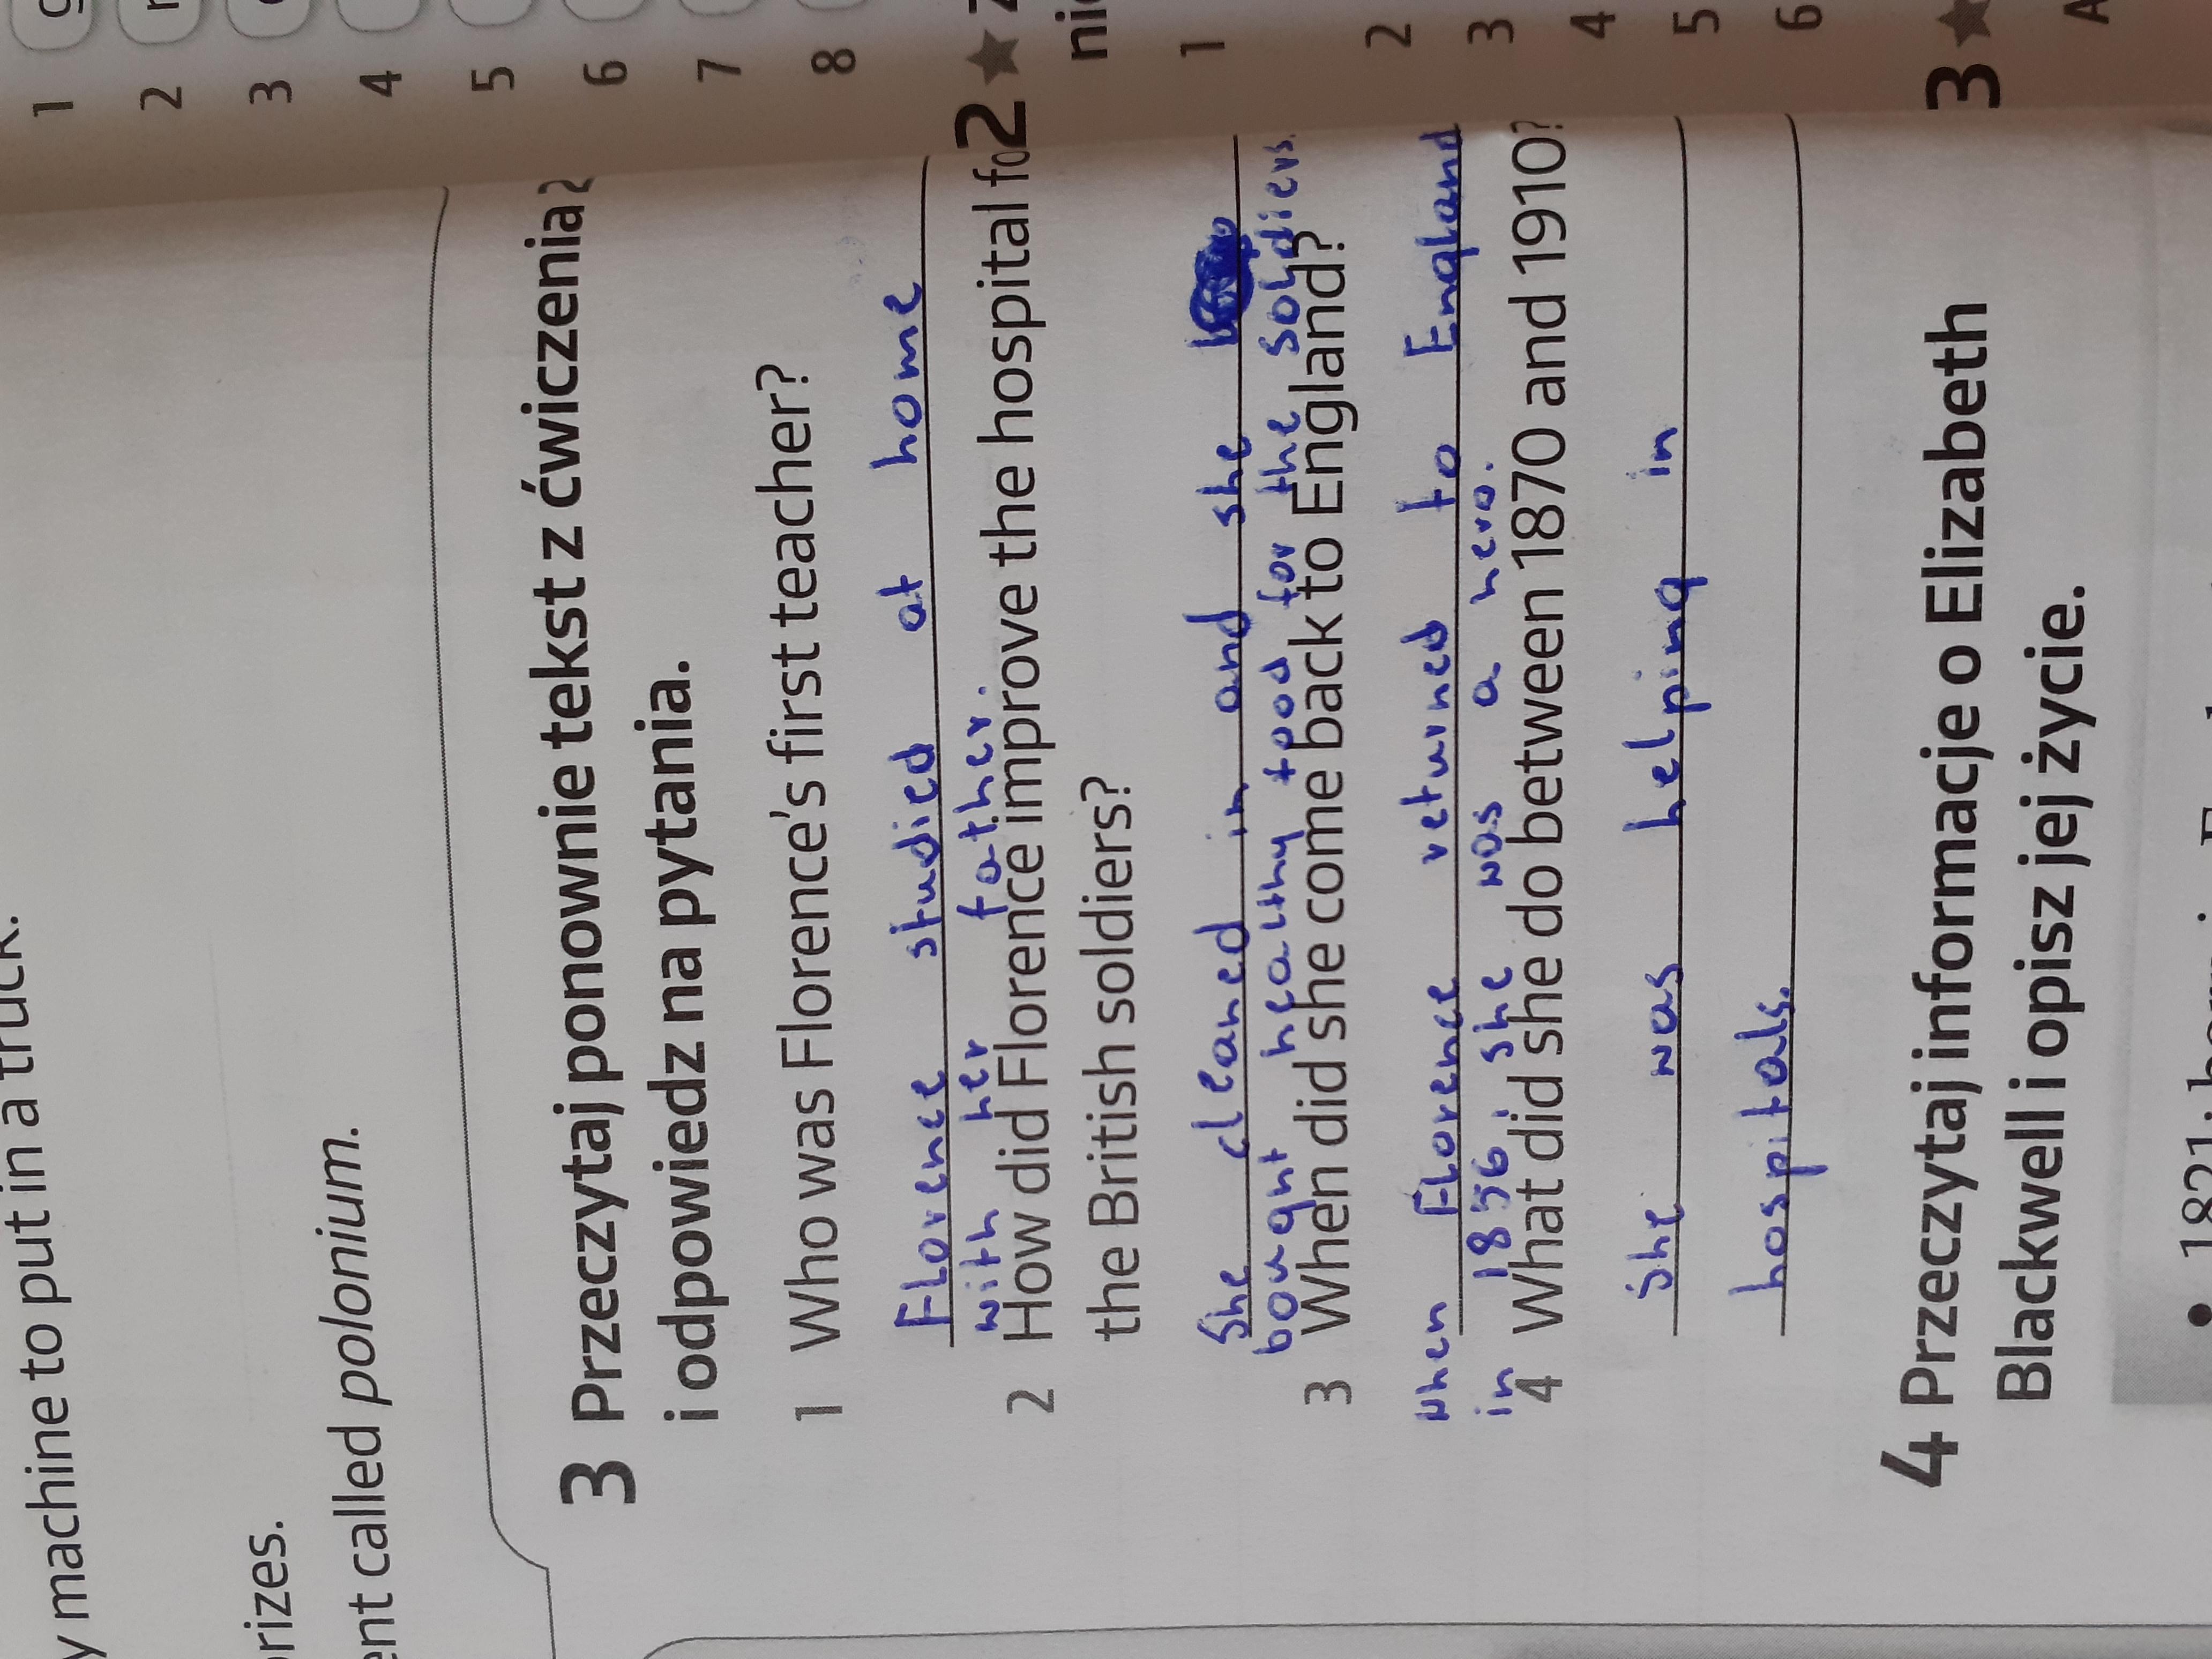 y machine to put in a truck.
prizes.
ent called polonium.
3 Przeczytaj ponownie tekst z ćwiczenia 2
i odpowiedz na pytania.
1 Who was Florence's first teacher?
Florence studied at home
with her father.
2 How did Florence improve the hospital fo
the British soldiers?
She cleaned in and she
bought healthy food for the soldiers.
3 When did she come back to England?
when Florence returned to England
in 1856 she was a hero.
4 What did she do between 1870 and 1910?
She was helping in
hospitals.
4 Przeczytaj informacje o Elizabeth
Blackwell i opisz jej życie.
1
2
3
4
5
6
7
8
2
ni
1
2
3
4
5
6
3
A